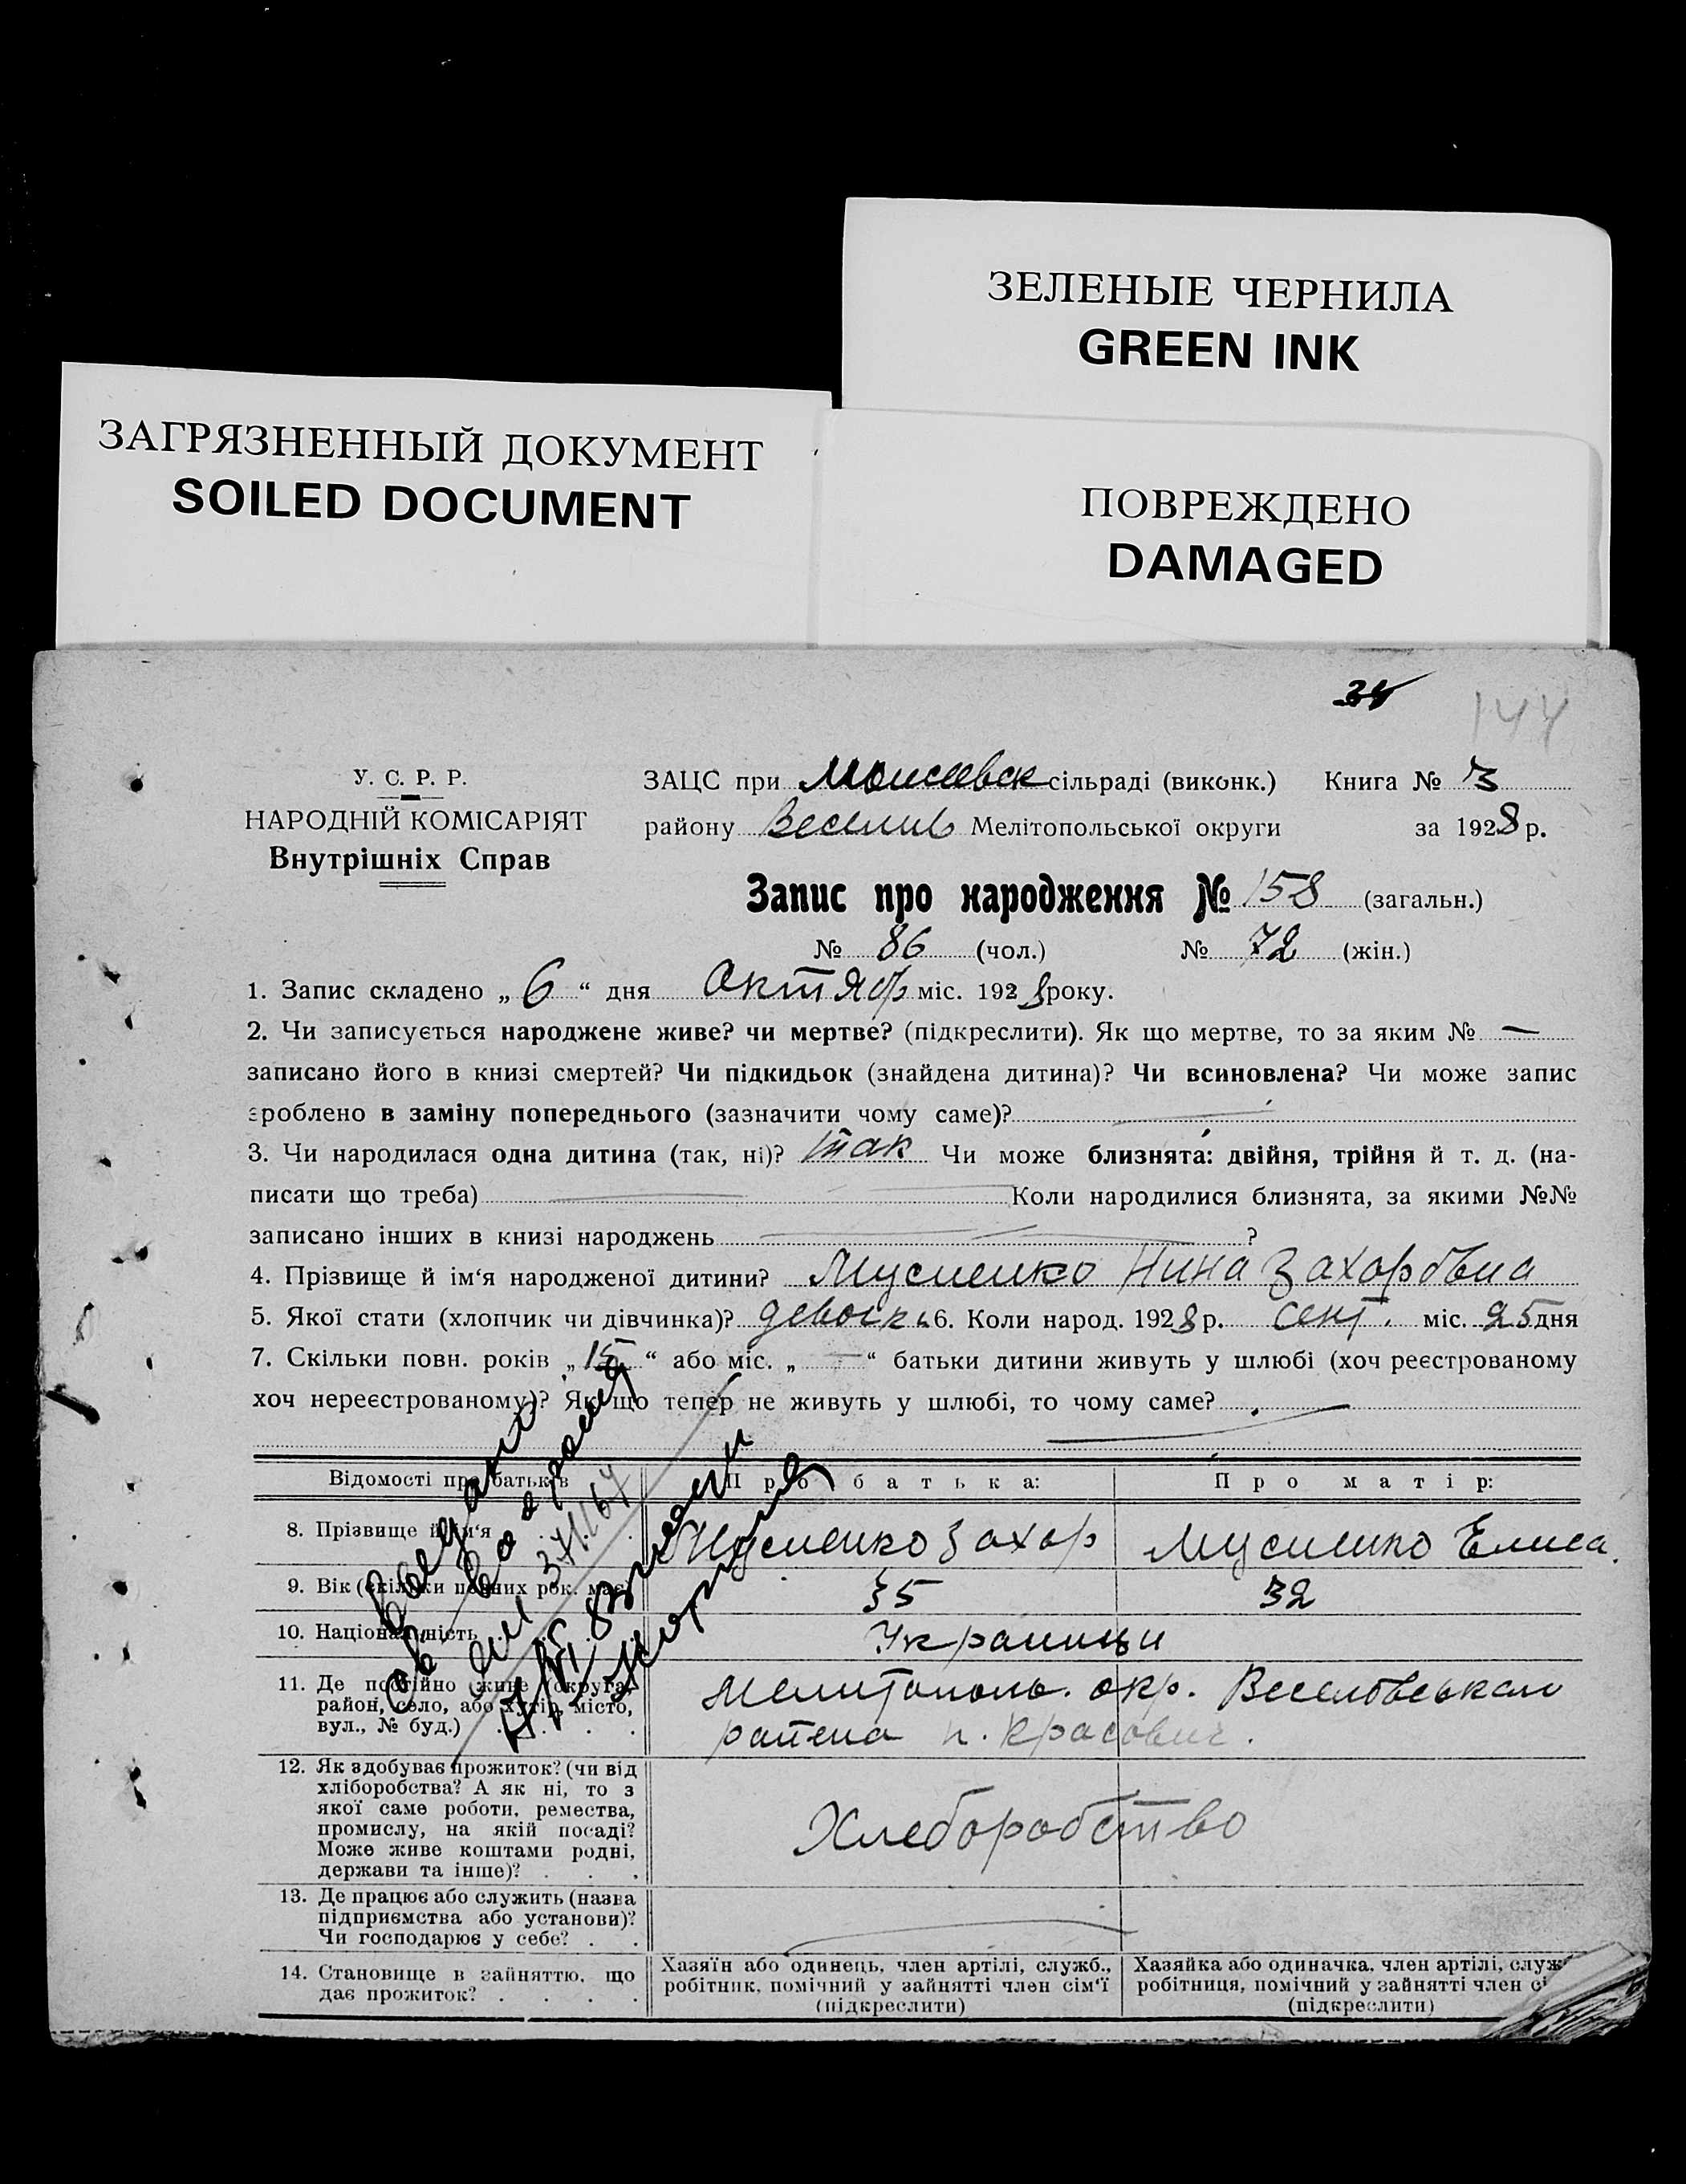 ЗЕЛЕНЫЕ ЧЕРНИЛА
GREEN INK
ЗАГРЯЗНЕННЫЙ ДОКУМЕНТ
SOILED DOCUMENT
ПОВРЕЖДЕНО
DAMAGED
34
144
У. С. Р. Р.
НАРОДНІЙ КОМІСАРІЯТ
Внутрішніх Справ
ЗАЦС при Моисеевск сільраді (виконк.) Книга № 3
району Веселив Мелітопольської округи за 1928 р.
Запис про народження № 158 (загальн.)
№ 86 (чол.) № 72 (жін.)
1. Запис складено „ 6 “ дня Октябр міс. 1928 року.
2. Чи записується народжене живе? чи мертве? (підкреслити). Як що мертве, то за яким № —
записано його в книзі смертей? Чи підкидьок (знайдена дитина)? Чи всиновлена? Чи може запис
зроблено в заміну попереднього (зазначити чому саме)?
3. Чи народилася одна дитина (так, ні)? так Чи може близнята: двійня, трійня й т. д. (на-
писати що треба) Коли народилися близнята, за якими №№
записано інших в книзі народжень ?
4. Прізвище й ім‘я народженої дитини? Мусиенко Нина Захаровна
5. Якої стати (хлопчик чи дівчинка)? девочка 6. Коли народ. 1928 р. сент. міс. 25 дня
7. Скільки повн. років „ 15 “ або міс. „ — “ батьки дитини живуть у шлюбі (хоч реєстрованому
хоч нереєстрованому)? Як що тепер не живуть у шлюбі, то чому саме?
Відомості про батьків Про батька: Про матір:
8. Прізвище й ім‘я Мусиенко Захар Мусиенко Елиса.
9. Вік (скільки повних рок. має) 35 32
10. Національність Украинци
11. Де постійно живе (округа,
район, село, або хутір, місто,
вул., № буд.)
Мелитополь. окр. Веселовського
района п. Красович.
12. Як здобуває прожиток? (чи від
хліборобства? А як ні, то з
якої саме роботи, ремества,
промислу, на якій посаді?
Може живе коштами родні,
держави та інше)?
Хлеборобство
13. Де працює або служить (назва
підприємства або установи)?
Чи господарює у себе?
14. Становище в зайняттю, що
дає прожиток?
Хазяїн або одинець, член артілі, служб.,
робітник, помічний у зайнятті член сім‘ї
(підкреслити)
Хазяйка або одиначка, член артілі, служ
робітниця, помічний у зайнятті член сі
(підкреслити)